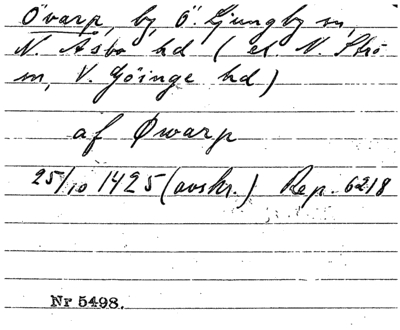 Övarp, by, Ö. Ljungby sn,
N. Åsbo hd (el. N. Strö
sn, V. Göinge hd)
af Øwarp
25/10 1425 (avskr.) Rep. 6218
Nr 5498.